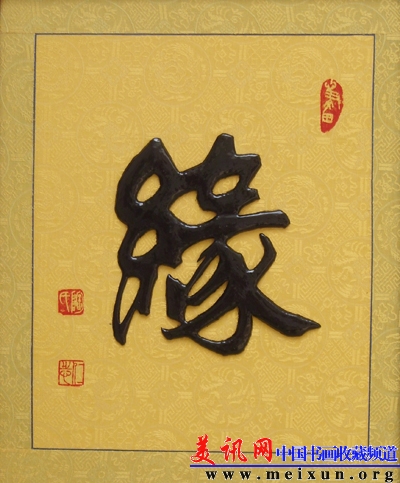 緣
美讯网中国书画收藏频道
www.meixun.org